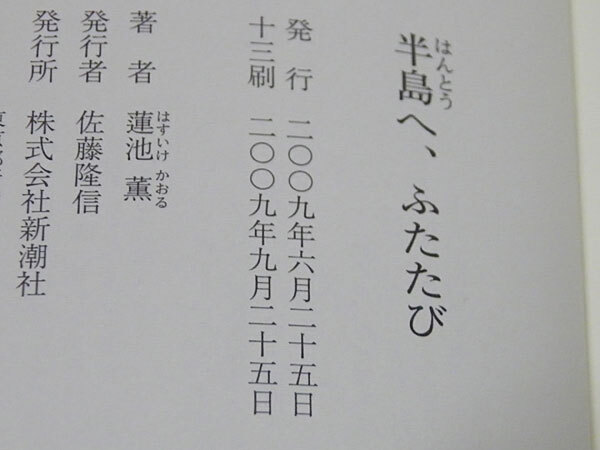 半島へ、ふたたび
はんとう
発行 二〇〇九年六月二十五日
十三刷 二〇〇九年九月二十五日
著者 蓮池 薫
はすいけ かおる
発行者 佐藤隆信
発行所 株式会社新潮社